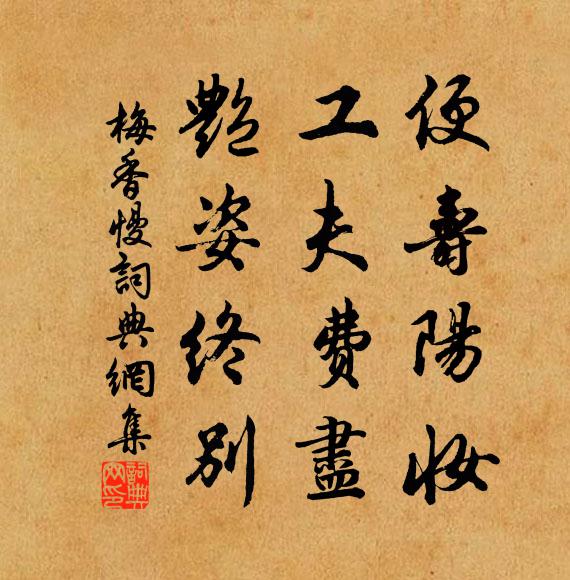 便壽陽妝
工夫費盡
艷姿終別
梅香慢詞典網集
詞典網印